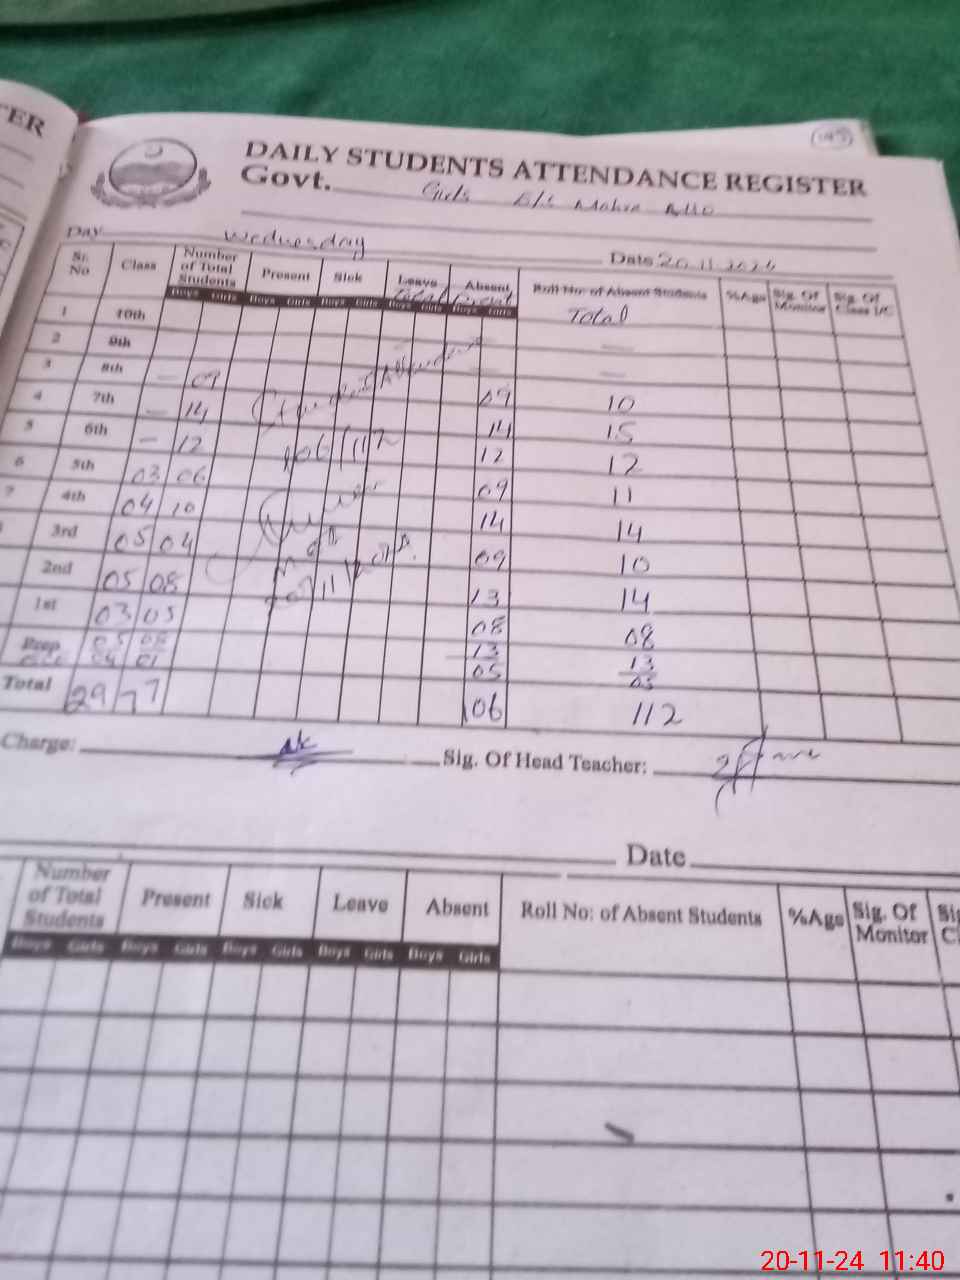 TER
DAILY STUDENTS ATTENDANCE REGISTER
Govt. Girls
Day Wednesday Date 20.11.2024
Sr. No Class Number of Total Students Present Sick Leave Absent Roll No: of Absent Students %Age Sig. Of Monitor Sig. Of Class I/C
Boys Girls Boys Girls Boys Girls Boys Girls Boys Girls
Total
1 10th
2 9th —
3 8th — 09 —
4 7th — 14 09 10
5 6th — 12 14 15
6 5th 03 06 12 12
7 4th 04 10 09 11
3rd 05 04 14 14
2nd 05 08 09 10
1st 03 05 13 14
Prep 05 08 08 08
04 01 13 13
05 05
Total 29 77 106 112
Student Attendance
106/112
Charge: Sig. Of Head Teacher:
Date
Number of Total Students Present Sick Leave Absent Roll No: of Absent Students %Age Sig. Of Monitor
Boys Girls Boys Girls Boys Girls Boys Girls Boys Girls
20-11-24 11:40